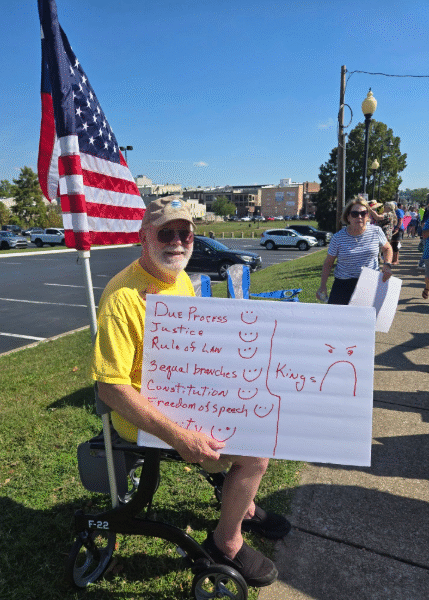 Due Process
Justice
Rule of Law
3equal branches
Constitution
Freedom of speech
Kings
F-22